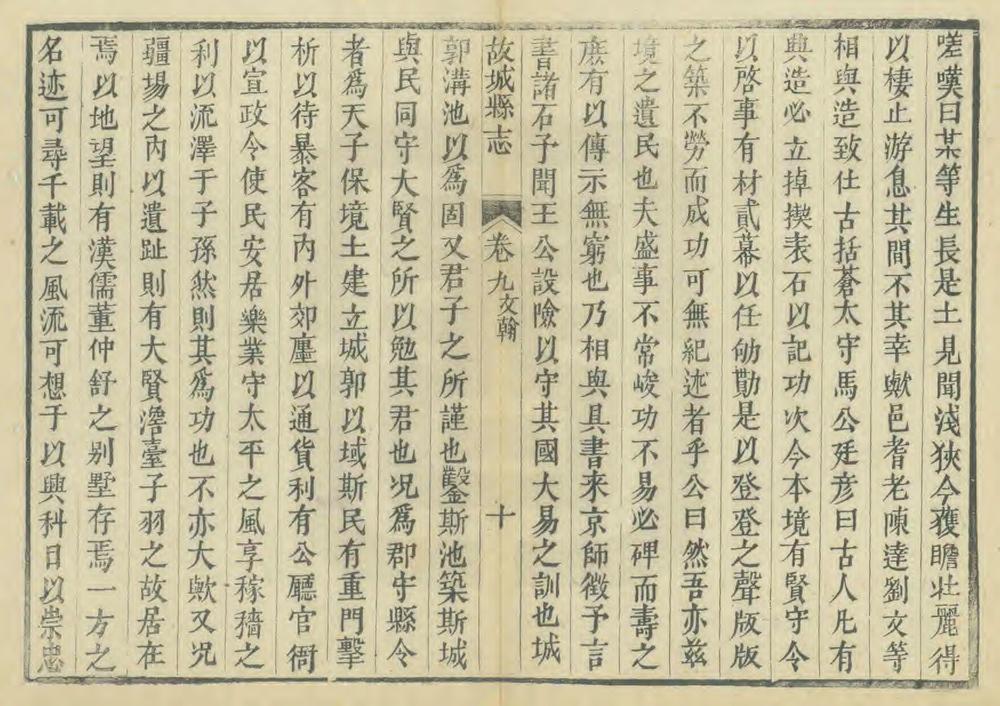 嗟嘆曰某等生長是土見聞淺狹今獲瞻壯麗得
以棲止游息其間不其幸歟邑耆老陳達劉文等
相與造致仕古括蒼太守馬公廷彥曰古人凡有
典造必立掉楔表石以記功次今本境有賢守令
以啓事有材貳幕以任劬勩是以登登之聲版版
之築不勞而成功可無紀述者乎公曰然吾亦茲
境之遺民也夫盛事不常峻功不易必碑而壽之
庶有以傳示無窮也乃相與具書来京師徵予言
書諸石予聞王公設險以守其國大易之訓也城
故城縣志 卷九文翰 十
郭溝池以爲固又君子之所謹也鑿斯池築斯城
與民同守大賢之所以勉其君也况爲郡守縣令
者爲天子保境土建立城郭以域斯民有重門擊
析以待暴客有内外郊廛以通貨利有公廳官衙
以宣政令使民安居樂業守太平之風享稼穡之
利以流澤于子孫然則其爲功也不亦大歟又况
疆場之内以遺趾則有大賢澹臺子羽之故居在
焉以地望則有漢儒董仲舒之别墅存焉一方之
名迹可尋千載之風流可想于以興科目以崇忠